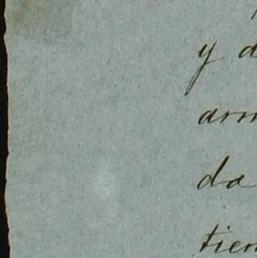 y d
arm
da
tien